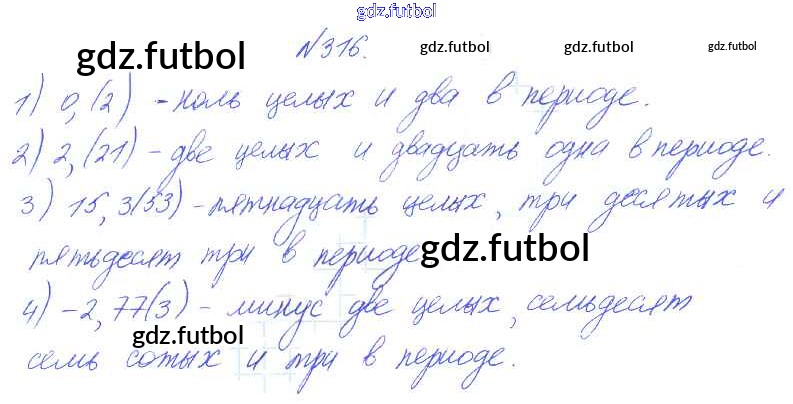 gdz.futbol
№316.
gdz.futbol gdz.futbol gdz.futbol gdz.futbol
1) 0,(2) - ноль целых и два в периоде.
2) 2,(21) - две целых и двадцать одна в периоде.
3) 15,3(53) - пятнадцать целых, три десятых и
пятьдесят три в периоде
gdz.futbol
4) -2,77(3) - минус две целых, семьдесят
gdz.futbol
семь сотых и три в периоде.